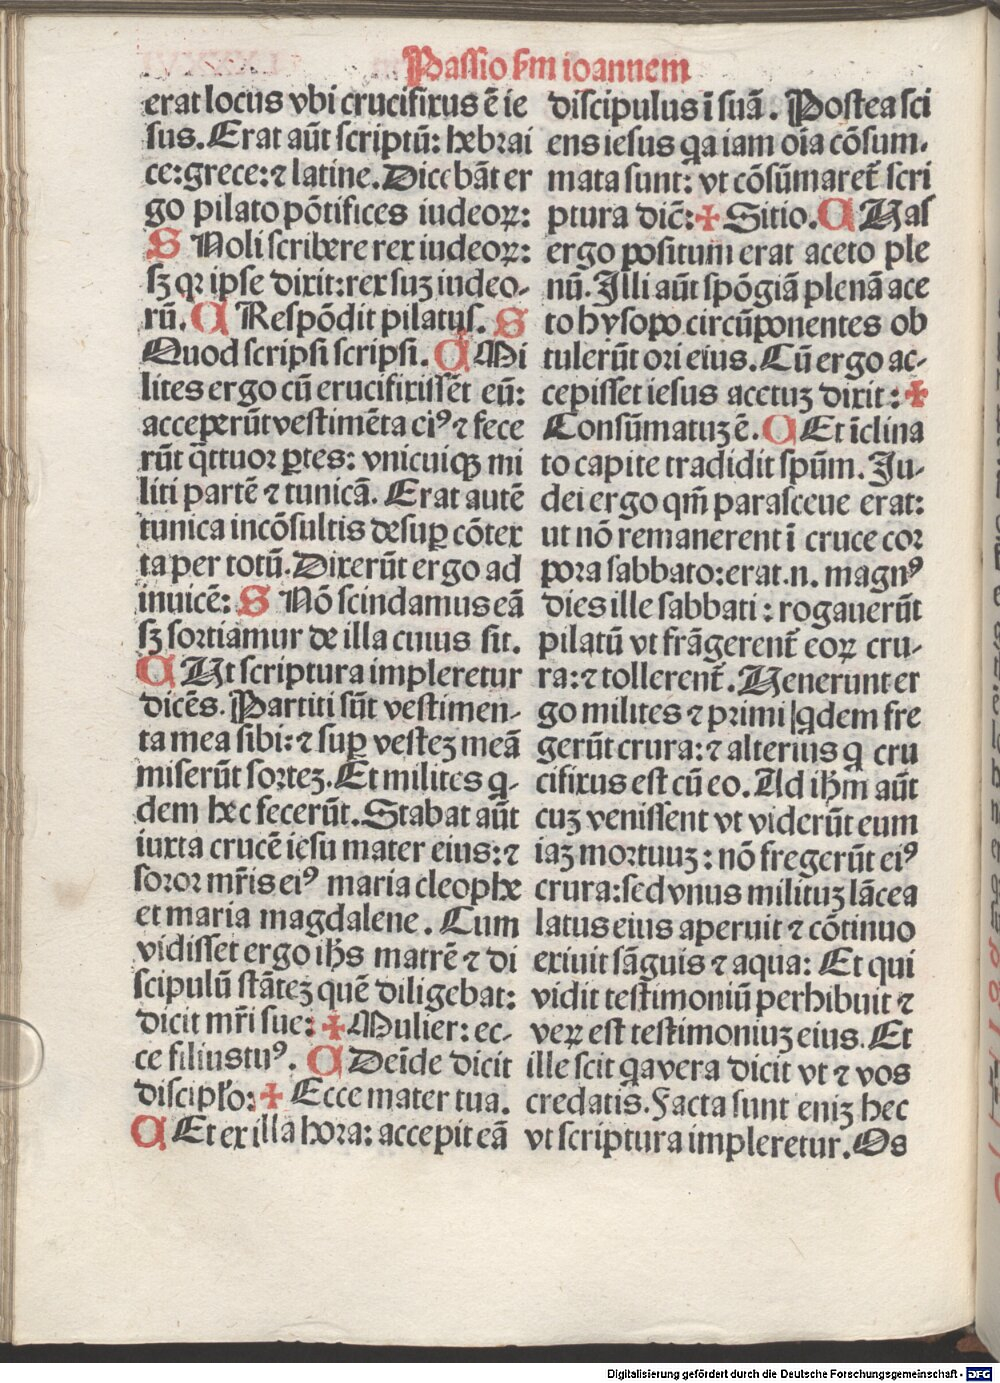 Passio ẜm ioannem
erat locus vbi crucifixus ē ie
sus. Erat aūt scriptū: hebrai
ce: grece: ⁊ latine. Dicebāt er
go pilato pōtifices iudeoꝝ:
S Noli scribere rex iudeoꝝ:
sꝫ qꝛ ipse dixit: rex suꝫ iudeo-
rū. C Respōdit pilatus. S
Quod scripsi scripsi. C Mi
lites ergo cū crucifixissēt eū:
acceperūt vestimēta eiꝰ ⁊ fece
rūt q̄ttuor ꝑtes: vnicuiqꝫ mi
liti partē ⁊ tunicā. Erat autē
tunica incōsultis desuꝑ cōtex
ta per totū. Dixerūt ergo ad
inuicē: S Nō scindamus eā
sꝫ sortiamur de illa cuius sit.
C Ut scriptura impleretur
dicēs. Partiti sūt vestimen-
ta mea sibi: ⁊ suꝑ vesteꝫ meā
miserūt sorteꝫ. Et milites q-
dem hec fecerūt. Stabat aūt
iuxta crucē iesu mater eius: ⁊
soror mr̄is eiꝰ maria cleophe
et maria magdalene. Cum
vidisset ergo ihs̄ matrē ⁊ di
scipulū stāteꝫ quē diligebat:
dicit mr̄i sue: ✠ Mulier: ec-
ce filius tuꝰ. C Deīde dicit
discipło: ✠ Ecce mater tua.
C Et ex illa hora: accepit eā
discipulus ī suā. Postea sci
ens iesus qa iam oīa cōsum-
mata sunt: vt cōsūmaret̄ scri
ptura dic̄: ✠ Sitio. C Uas
ergo positum erat aceto ple
nū. Illi aūt spōgiā plenā ace
to hysopo circūponentes ob
tulerūt ori eius. Cū ergo ac-
cepisset iesus acetuꝫ dixit: ✠
Consūmatuꝫ ē. C Et īclina
to capite tradidit spūm. Iu-
dei ergo qm̄ parasceue erat:
ut nō remanerent ī cruce cor
pora sabbato: erat .n. magnꝰ
dies ille sabbati: rogauerūt
pilatū vt frāgerent̄ eoꝝ cru-
ra: ⁊ tollerent̄. Uenerunt er
go milites ⁊ primi qdem fre
gerūt crura: ⁊ alterius q cru
cifixus est cū eo. Ad ihm̄ aūt
cuꝫ venissent vt viderūt eum
iaꝫ mortuuꝫ: nō fregerūt eiꝰ
crura: sed vnus milituꝫ lācea
latus eius aperuit ⁊ cōtinuo
exiuit sāguis ⁊ aqua: Et qui
vidit testimoniū perhibuit ⁊
veꝝ est testimoniuꝫ eius. Et
ille scit qa vera dicit vt ⁊ vos
credatis. Facta sunt eniꝫ hec
vt scriptura impleretur. Os
Digitalisierung gefördert durch die Deutsche Forschungsgemeinschaft - DFG